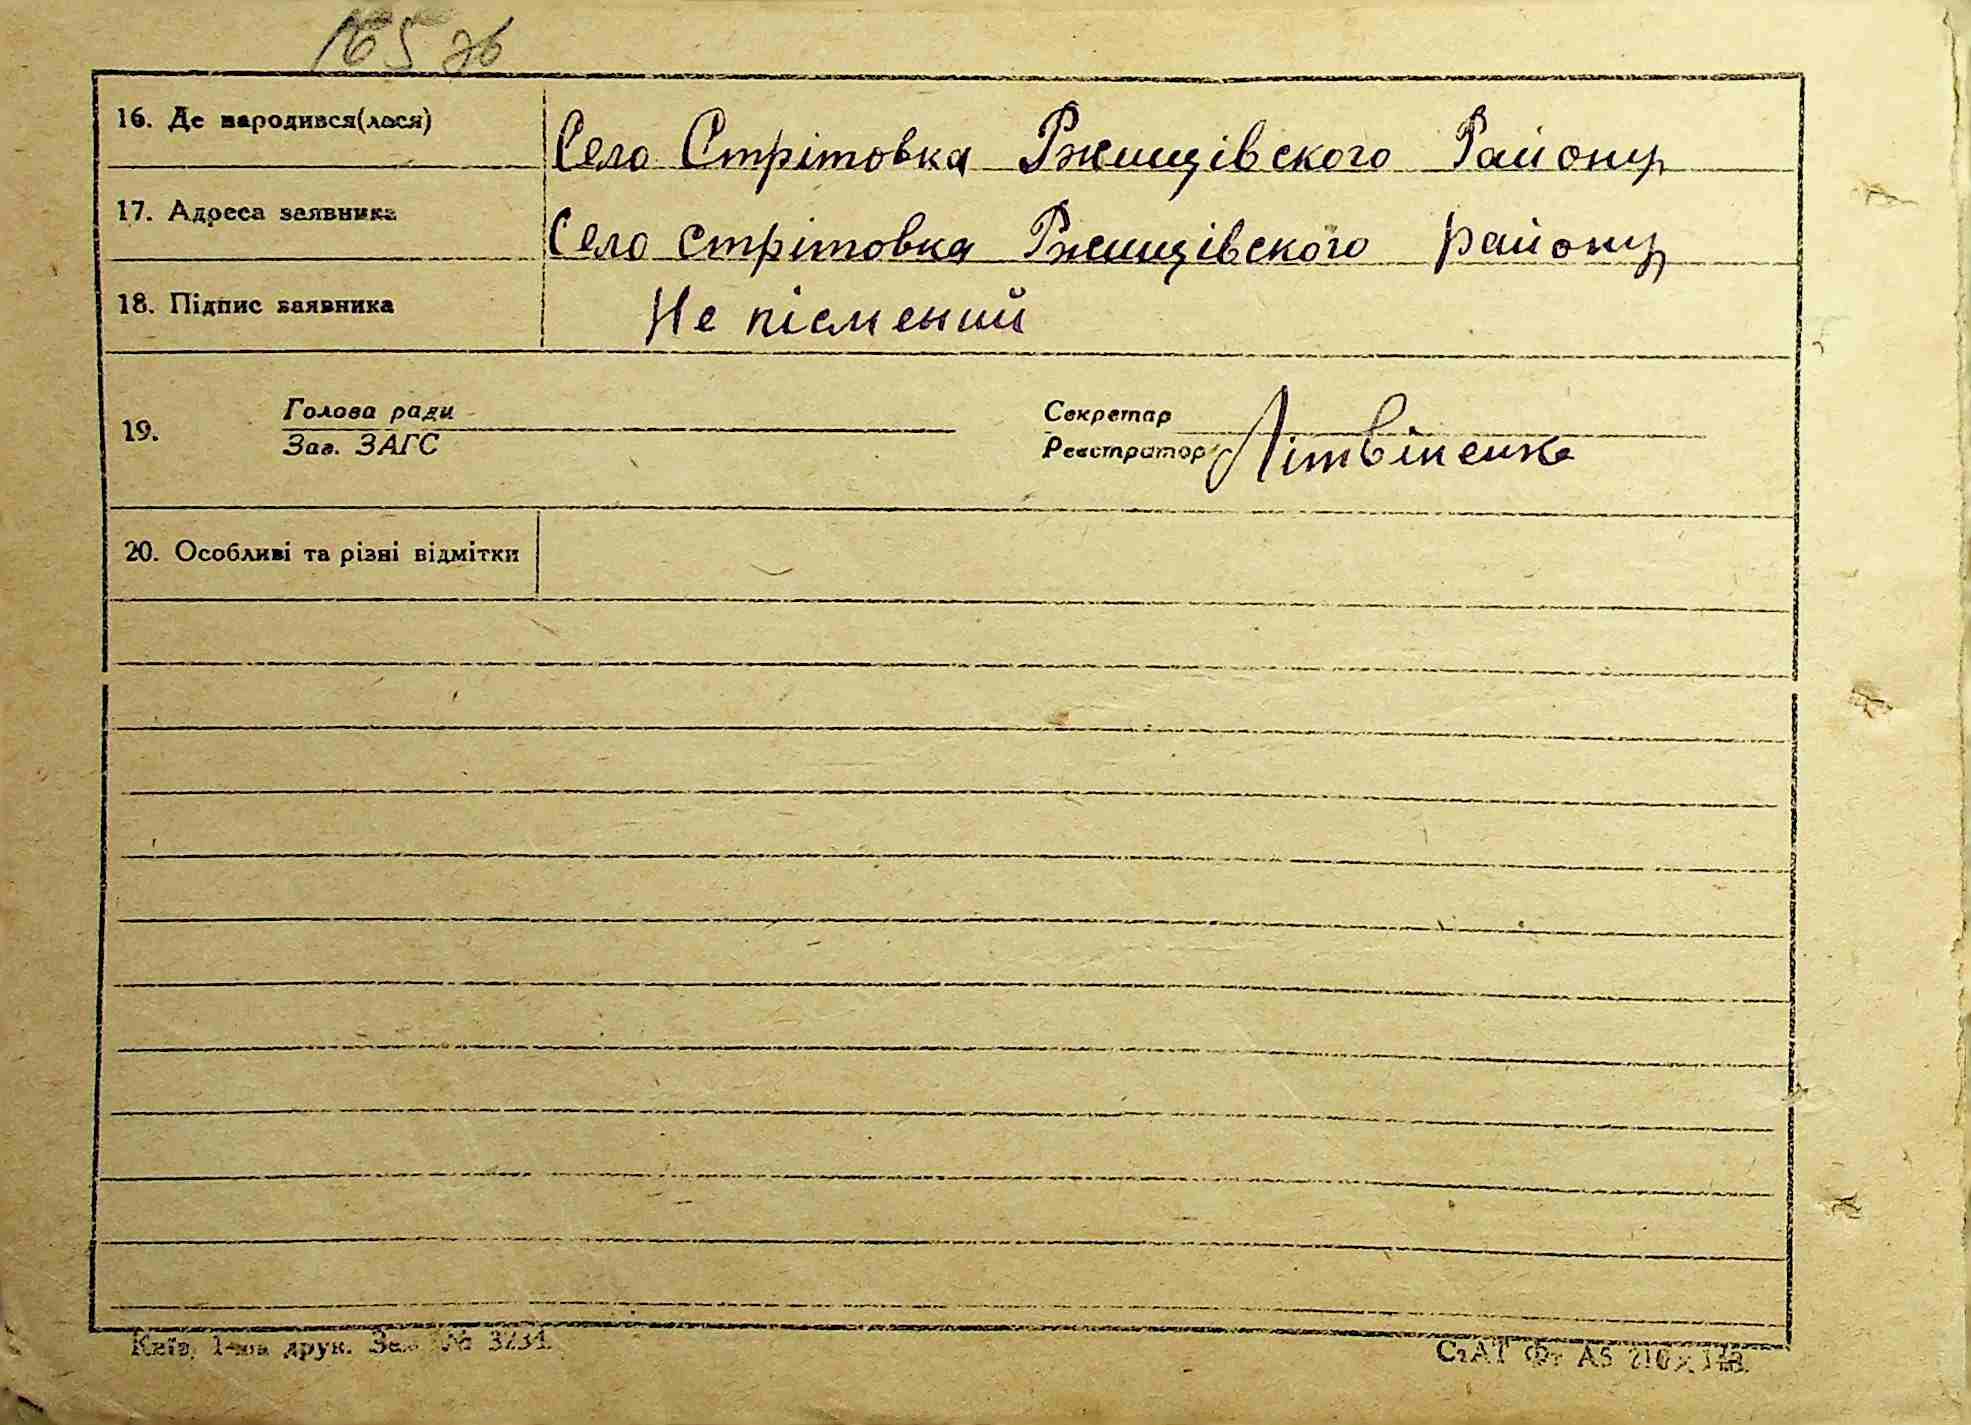 165 зв
16. Де народився(лася) Село Стрітовка Ржищівского Району
17. Адреса заявника Село стрітовка Ржищівского району
18. Підпис заявника Не пісмений
Голова ради Секретар
19. Зав. ЗАГС Реєстратор Літвіненко
20. Особливі та різні відмітки
Київ, 1-ша друк. Зам. № 3234.
СтАТ Фт А5 210×148.